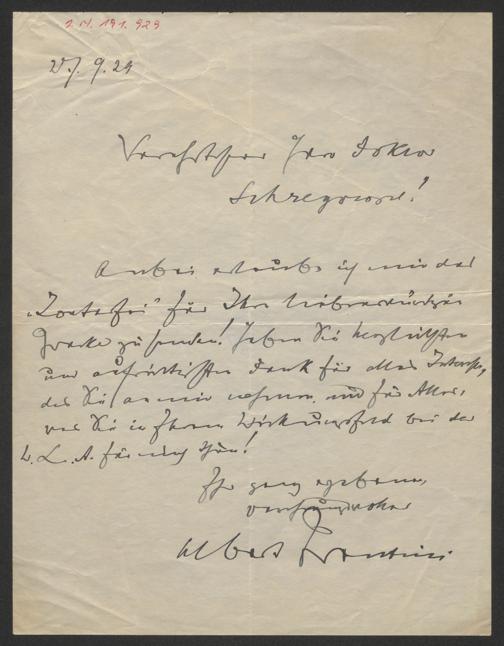 I.N. 191.929
27. 9. 29
Verehrtester Herr Doktor
Anbei erlaube ich mir das
für Ihre liebenswürdigen
Zwecke zu senden! Haben Sie herzlichsten
und aufrichtigsten Dank für alles Interesse,
das Sie an mir nehmen und für Alles,
was Sie in Ihrem Wirkungsfeld bei der
für mich thun!
Ihr ganz ergebener,
Albert